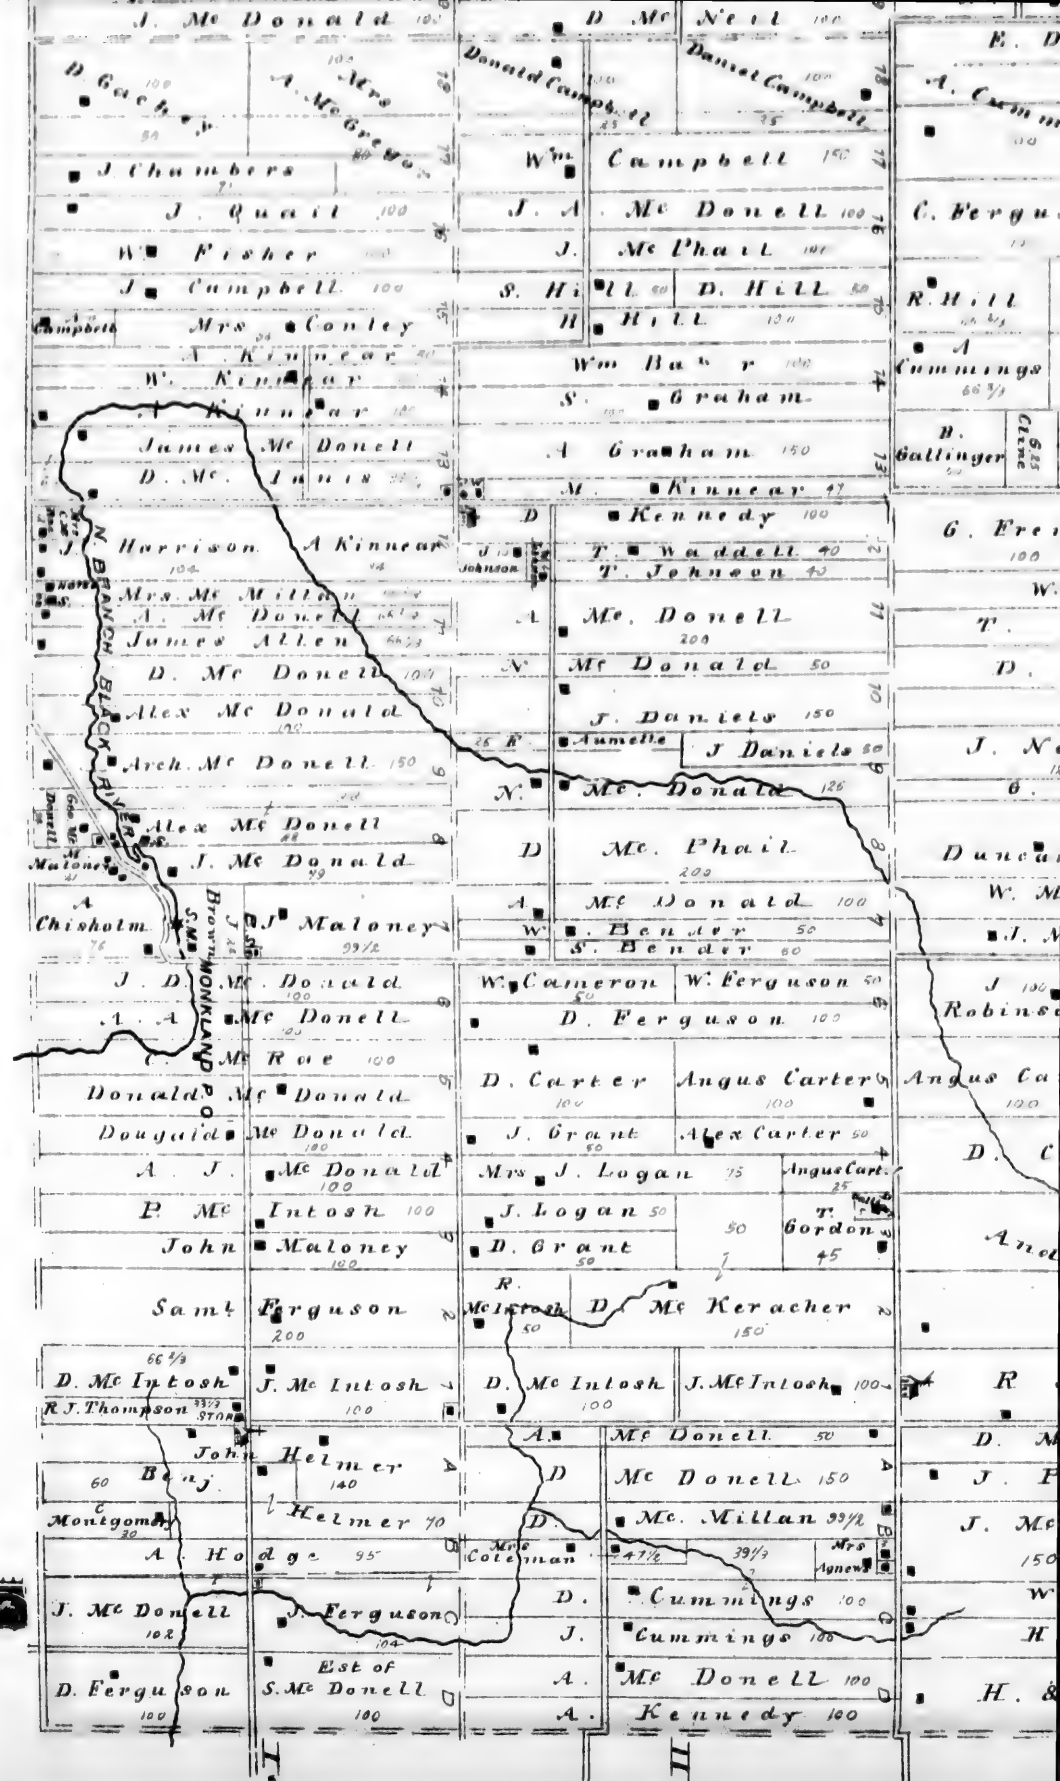 J. Mc Donald 100
D. Gach
100
50
100
Mrs
A. Mc Gregor
80
J. Chambers
J. Quail 100
W. Fisher
J. Campbell 100
A
Campbell
Mrs Conley
A. Kinnear 50
W. Kinnear
A. Kinnear 100
James Mc Donell
D. Mc. Innis
J. Harrison
104
A Kinnear
94
HOTEL
Mrs. Mc Millan
A. Mc Donell 66 1/3
James Allen 66 1/3
D. Mc Donell 100
Alex Mc Donald
100
Arch. Mc Donell 150
Geo Mc Donell
Alex Mc Donell
J. Mc Donald
99
M
Maloney
41
A
Chisholm
76
S. Mc
Brown
J. Maloney
99 1/2
N BRANCH BLACK RIVER
MONKLAND P.O
J. D. Mc. Donald
100
A. A. Mc Donell
100
C. Mc Rae 100
Donald Mc Donald
Dougald Mc Donald
100
A. J. Mc Donald
100
P. Mc Intosh 100
John Maloney
100
Saml Ferguson
200
66 2/3
D. Mc Intosh
J. Mc Intosh
100
R J. Thompson 33 1/3
STORE
John Helmer
140
60 Benj Helmer 70
C
Montgomery
30
A. Hodge 95
J. Mc Donell
102
J. Ferguson
104
D. Ferguson
100
Est of
S. Mc Donell
100
18
17
16
15
14
13
12
11
10
9
8
7
6
5
4
3
2
1
A
B
C
D
I.
D. Mc Neil 100
Donald Campbell
100
25
Daniel Campbell
100
25
Wm Campbell 150
J. A. Mc Donell 100
J. Mc Phail 100
S. Hill 50
D. Hill 50
H Hill 100
Wm Baker 100
S. Graham
100
A Graham 150
M. Kinnear 47
D Kennedy 100
J
Johnson
T. Waddell 40
T. Johnson 40
A Mc. Donell
200
N Mc Donald 50
J. Daniels 150
25 F. Aumelle
J Daniels 50
N. Mc. Donald 125
D Mc. Phail
200
A. Mc Donald 100
W. Bender 50
S. Bender 50
W. Cameron
50
W. Ferguson 50
D. Ferguson 100
D. Carter
100
Angus Carter
100
J. Grant
50
Alex Carter 50
Mrs J. Logan 75
Angus Cart.
25
J. Logan 50
D. Grant
50
50
T.
Gordon
45
R.
Mc Intosh
50
D. Mc Keracher
150
D. Mc Intosh
100
J. Mc Intosh 100
A. Mc Donell 50
D Mc Donell 150
D. Mc. Millan 99 1/2
Mrs
Coleman 47 1/2
39 1/3
Mrs
Agnew
D. Cummings 100
J. Cummings 100
A. Mc Donell 100
A. Kennedy 100
18
17
16
15
14
13
12
11
10
9
8
7
6
5
4
3
2
A
B
C
D
II
E. D
A. Cumm
C. Fergu
R. Hill
A
Cummings
66 2/3
B.
Gallinger
Cline
6.25
G. Fre
100
W.
T.
D.
J. N
G.
Dunca
W. M
J. M
J 100
Robins
Angus Ca
100
D. C
And
R
D. M
J. P
J. Mc
150
W
H
H. &